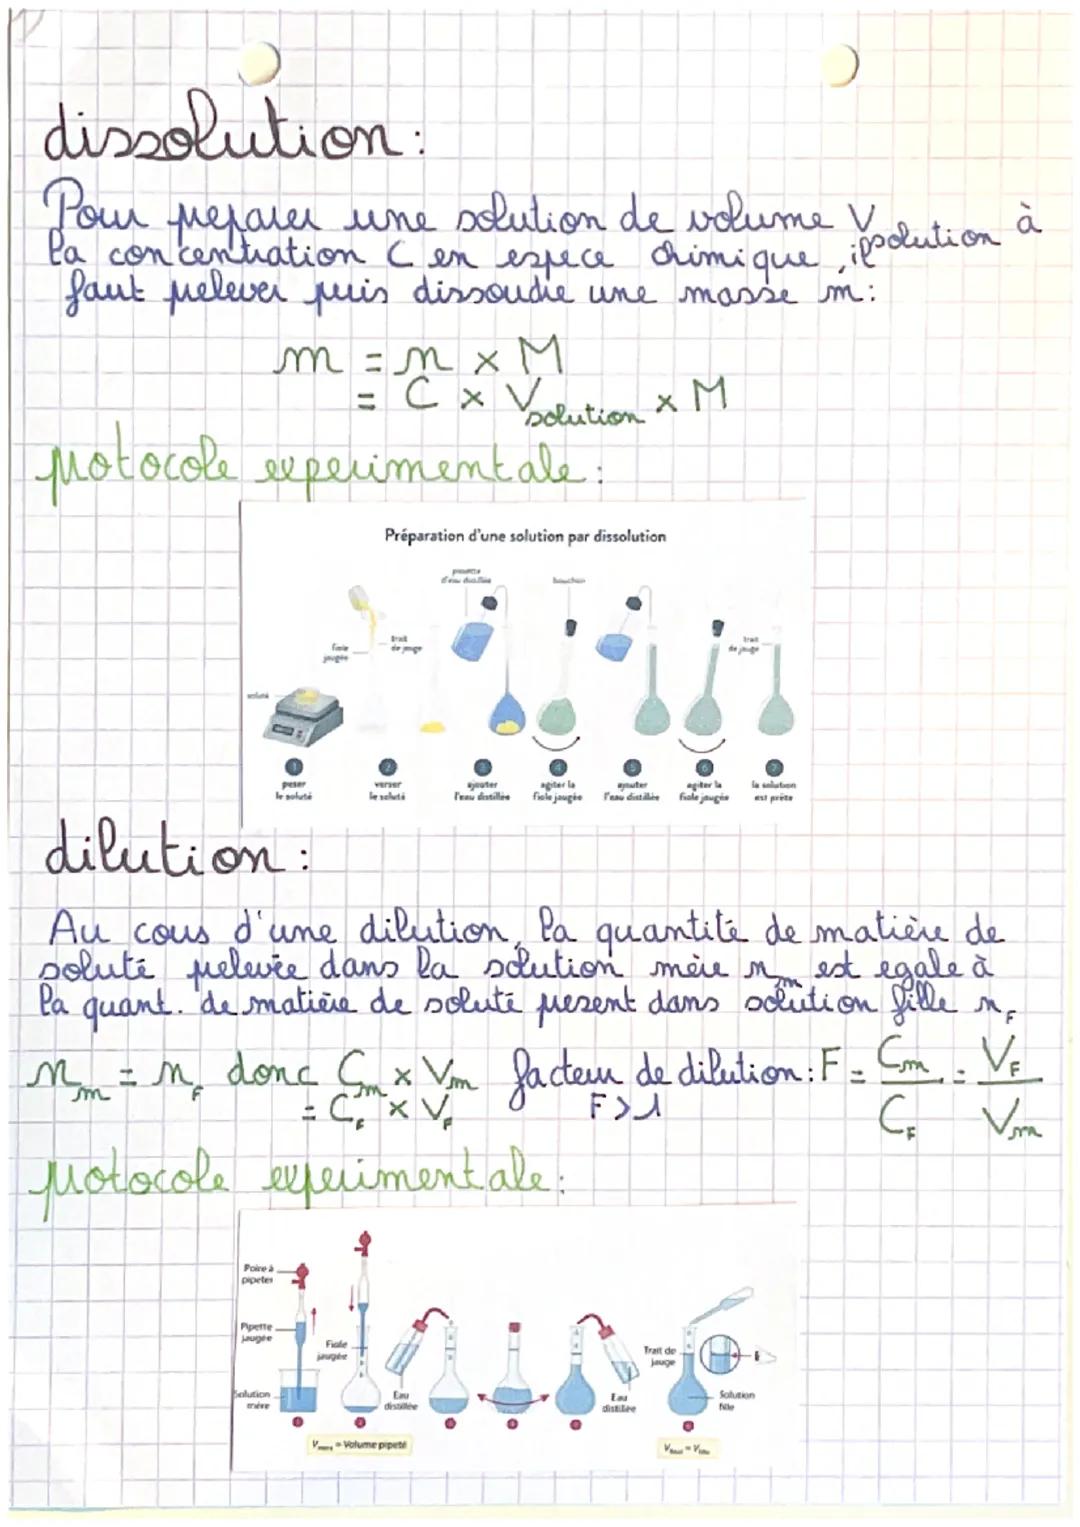 dissolution :
Pour preparer une solution de volume Vsolution à
la concentration C en espece chimique, il
faut prelever puis dissoudre une masse m :
m = n × M
= C × Vsolution × M
protocole experimentale :
Préparation d'une solution par dissolution
pissette
d'eau distillée
bouchon
fiole
jaugée
trait
de jauge
trait
de jauge
soluté
1 2 3 4 5 6 7
peser
le soluté
verser
le soluté
ajouter
l'eau distillée
agiter la
fiole jaugée
ajouter
l'eau distillée
agiter la
fiole jaugée
la solution
est prête
dilution :
Au cous d'une dilution, la quantité de matière de
soluté prelevée dans la solution mère nm est egale à
la quant. de matière de soluté present dans solution fille nF
nm = nF donc Cm × Vm facteur de dilution : F = Cm / CF = VF / Vm
= CF × VF F > 1
protocole experimentale :
Poire à
pipeter
Pipette
jaugée
Fiole
jaugée
Solution
mère
Eau
distillée
Eau
distillée
Trait de
jauge
Solution
fille
Vmère = Volume pipeté